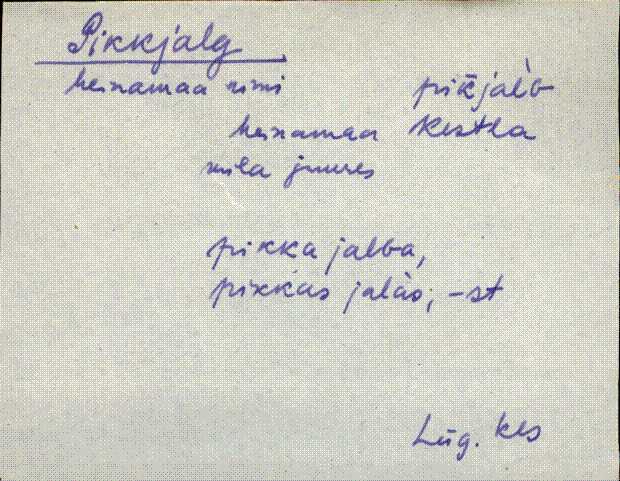 Pikkjalg
heinamaa nimi pik̄jalᴅ
heinamaa Kestla
mila juures
pikka jalga,
pikkas jalàs, -st
Lüg. Kes